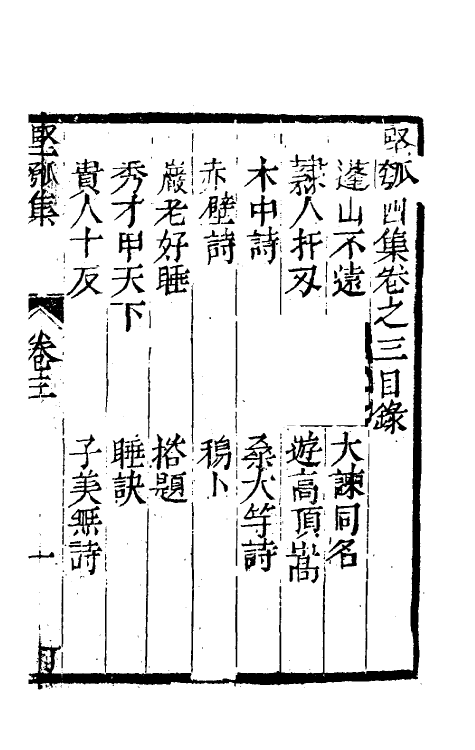 堅瓠四集卷之三目錄
蓬山不遠 大諫同名
隸人扞刃 遊高頂嵩
木中詩 桑大等詩
赤壁詩 鴉卜
嚴老好睡 搭題
秀才甲天下 睡訣
貴人十反 子美無詩
堅瓠集 卷三 一